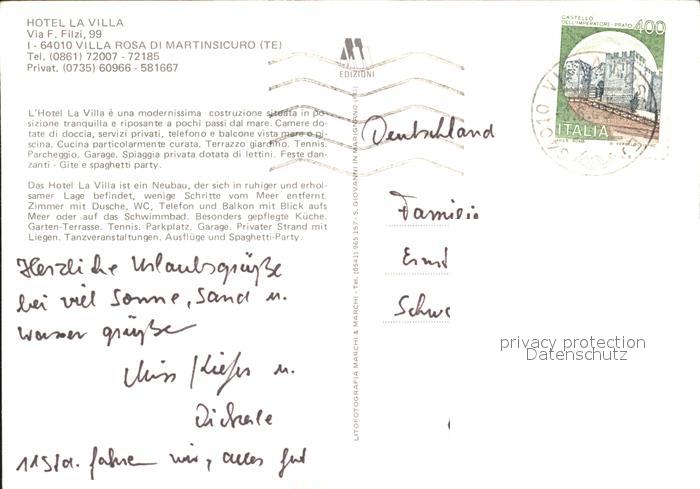 HOTEL LA VILLA
Via F. Filzi, 99
I - 64010 VILLA ROSA DI MARTINSICURO (TE)
Tel. (0861) 72007 - 72185
Privat. (0735) 60966 - 581667
ART
EDIZIONI
CASTELLO
DELL'IMPERATORE - PRATO
400
ITALIA
L'Hotel La Villa è una modernissima costruzione situata in po-
sizione tranquilla e riposante a pochi passi dal mare. Camere do-
tate di doccia, servizi privati, telefono e balcone vista mare o pi-
scina. Cucina particolarmente curata. Terrazzo giardino. Tennis.
Parcheggio. Garage. Spiaggia privata dotata di lettini. Feste dan-
zanti - Gite e spaghetti party.
Das Hotel La Villa ist ein Neubau, der sich in ruhiger und erhol-
samer Lage befindet, wenige Schritte vom Meer entfernt.
Zimmer mit Dusche, WC, Telefon und Balkon mit Blick aufs
Meer oder auf das Schwimmbad. Besonders gepflegte Küche.
Garten-Terrasse. Tennis. Parkplatz. Garage. Privater Strand mit
Liegen. Tanzveranstaltungen. Ausflüge und Spaghetti-Party.
Herzliche Urlaubsgrüße
bei viel Sonne, Sand u.
Wasser grüße
u.
fahren wir, alles gut
LITOFOTOGRAFIA MARCHI & MARCHI - Tel. (0541) 965 157 - S. GIOVANNI IN MARIGNANO (FO)
Deutschland
Familie
Ernst
Schwa
privacy protection
Datenschutz